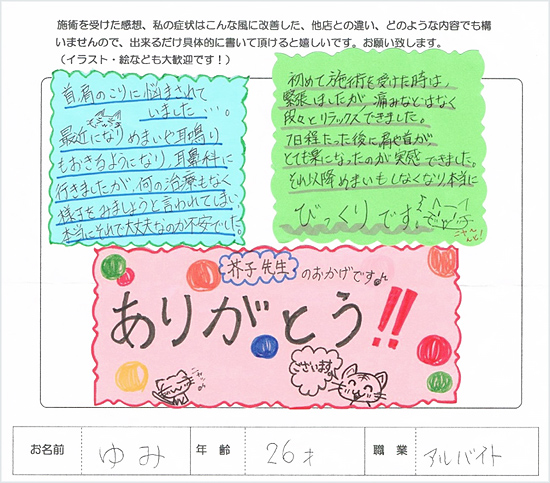 施術を受けた感想、私の症状はこんな風に改善した、他店との違い、どのような内容でも構
いませんので、出来るだけ具体的に書いて頂けると嬉しいです。お願い致します。
（イラスト・絵なども大歓迎です！）
首、肩のこりに悩まされて
いました…。
最近になりめまいや耳鳴り
もおきるようになり、耳鼻科に
行きましたが、何の治療もなく
様子をみましょうと言われてしまい
本当にそれで大丈夫なのか不安でした。
初めて施術を受けた時は、
緊張しましたが、痛みなどはなく
段々とリラックスできました。
7日程たった後に肩や首が、
とても楽になったのが実感できました。
それ以降めまいもしなくなり、本当に
びっくりです！
芥子先生のおかげですm
ありがとう!!
ニャッ
ございます
お名前 ゆみ 年齢 26才 職業 アルバイト